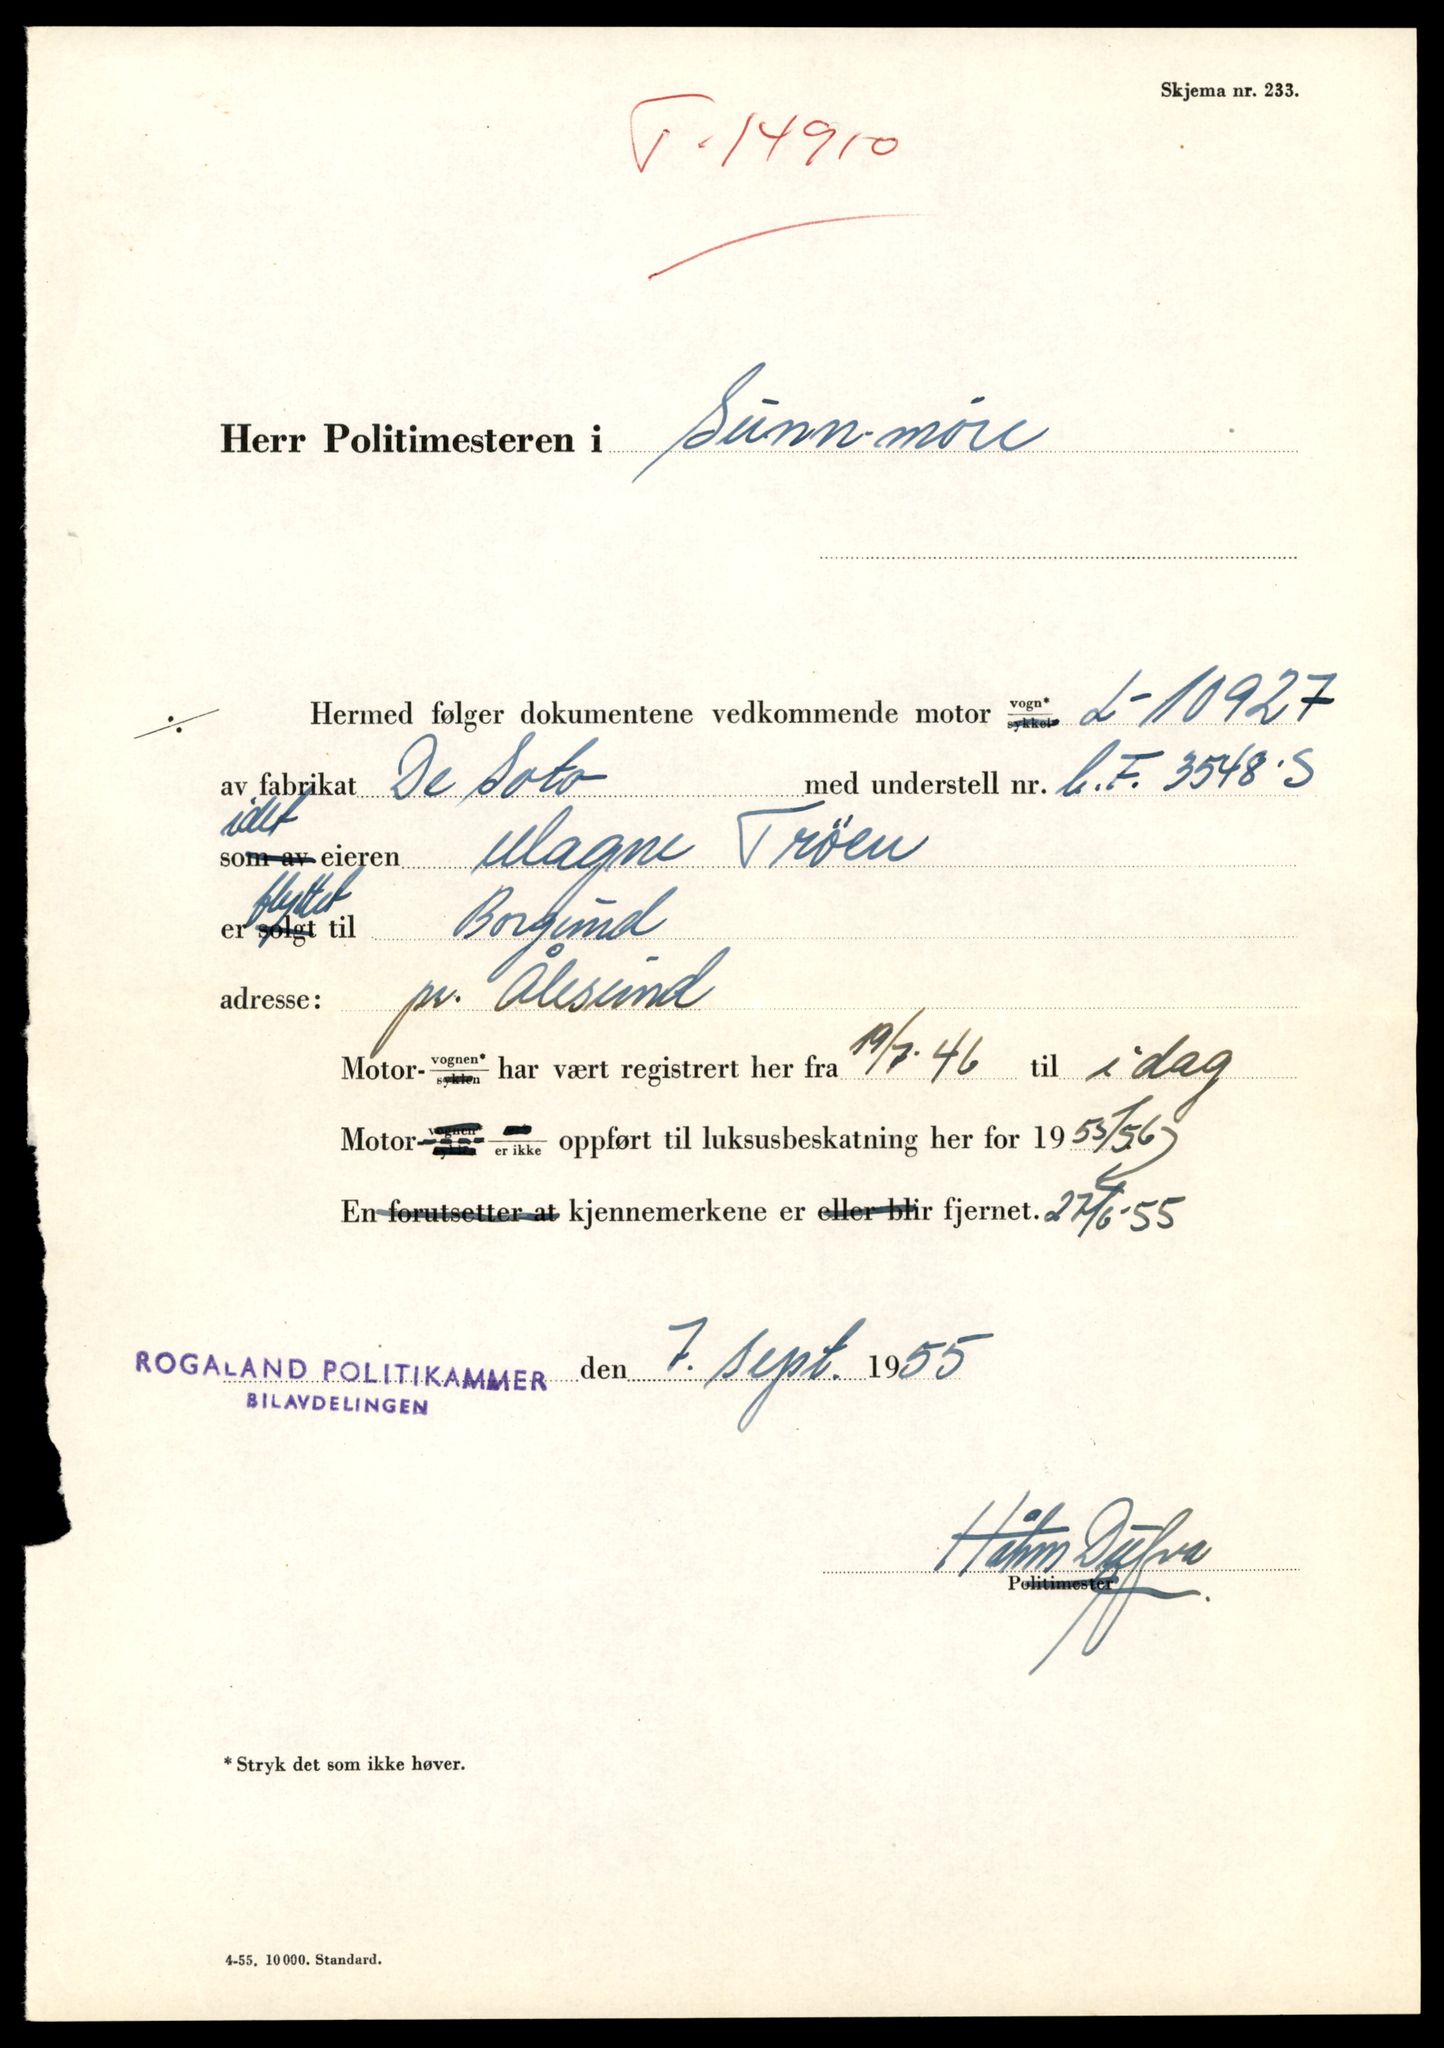 Skjema nr. 233.
T-14910
Herr Politimesteren i Sunn-møre
Hermed følger dokumentene vedkommende motor vogn* sykkel L-10927
av fabrikat De Soto med understell nr. C.F. 3548-S
idet
som av eieren Magne Tröen
flyttet
er solgt til Borgund
adresse: pr. Ålesund
Motor- vognen* syklen har vært registrert her fra 19/7-46 til i dag
Motor- vognen syklen er ikke oppført til luksusbeskatning her for 1955/56
En forutsetter at kjennemerkene er eller blir fjernet. 27/6-55
ROGALAND POLITIKAMMER den 7. sept. 1955
BILAVDELINGEN
Politimester
* Stryk det som ikke høver.
4-55. 10000. Standard.